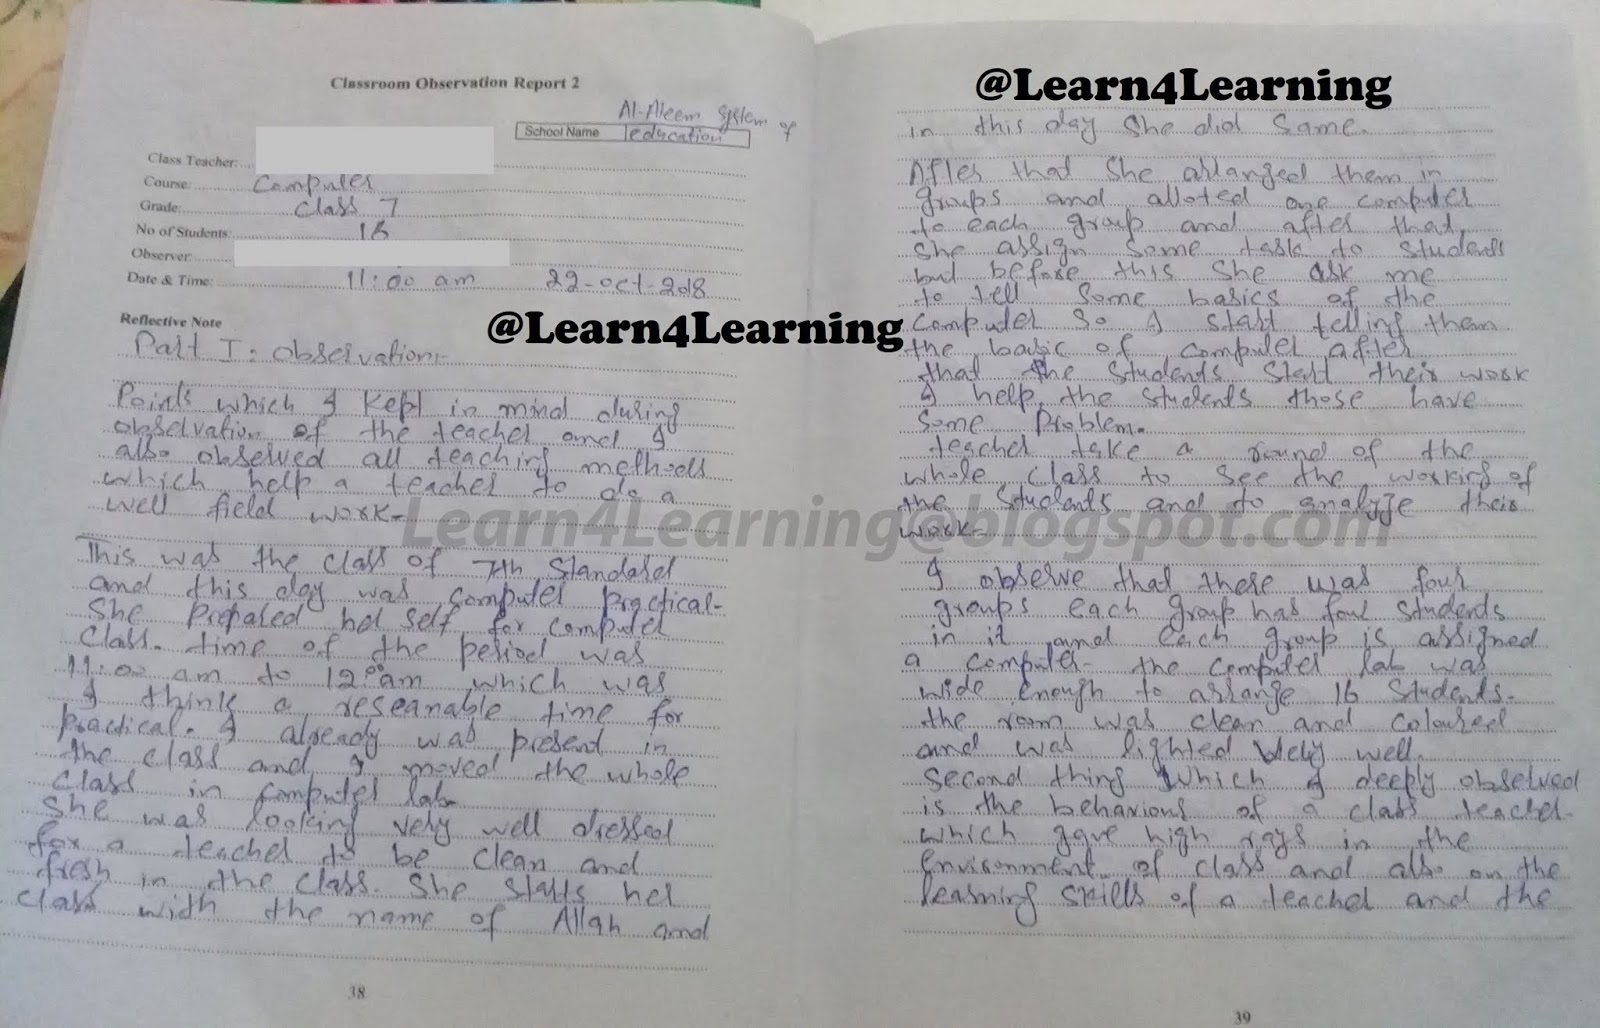 Classroom Observation Report 2
Al-Aleem System of
School Name education
Class Teacher:
Course: Computer
Grade: Class 7
No of Students: 16
Observer:
Date & Time: 11:00 am 22-oct-2018
Reflective Note
@Learn4Learning
Part I: observation:-
Points which I kept in mind during
observation of the teacher and I
also observed all teaching methods
which help a teacher to do a
well field work.
This was the class of 7th Standard
and this day was computer practical.
She prepared her self for computer
class. time of the period was
11:00 am to 12:00 am which was
I think a reseanable time for
practical. I already was present in
the class and I moved the whole
class in computer lab.
She was looking very well dressed
for a teacher to be clean and
fresh in the class. She starts her
class with the name of Allah and
38
@Learn4Learning
in this day She did Same.
After that She arranged them in
groups and alloted one computer
to each group and after that
She assign Some task to Students
but before this She ask me
to tell Some basics of the
Computer So I start telling them
the basic of computer after
that the Students Start their work
I help the Students those have
Some Problem.
teacher take a round of the
whole class to See the working of
the Students and to analyze their
work.
Learn4Learning@blogspot.com
I observe that there was four
groups each group has four Students
in it and each group is assigned
a computer. the computer lab was
wide enough to arrange 16 Students.
the room was clean and coloured
and was lighted very well.
Second thing which I deeply observed
is the behaviour of a class teacher
which gave high rays in the
Environment of class and also on the
learning skills of a teacher and the
39